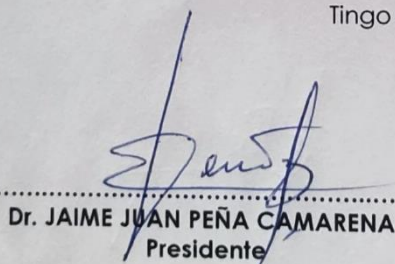 Tingo
Dr. JAIME JUAN PEÑA CAMARENA
Presidente